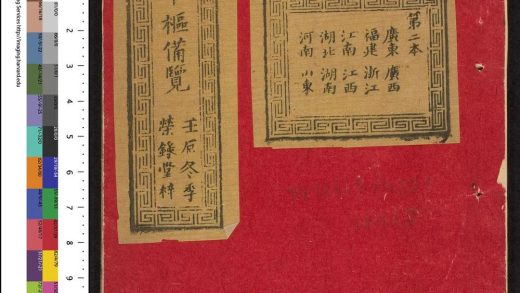 第二本
廣東 廣西
福建 浙江
江南 江西
湖北 湖南
河南 山東
樞備覽
壬辰冬季
榮錄堂梓
Services http://imaging.harvard.edu
2
3
4
5
6
7
8
9